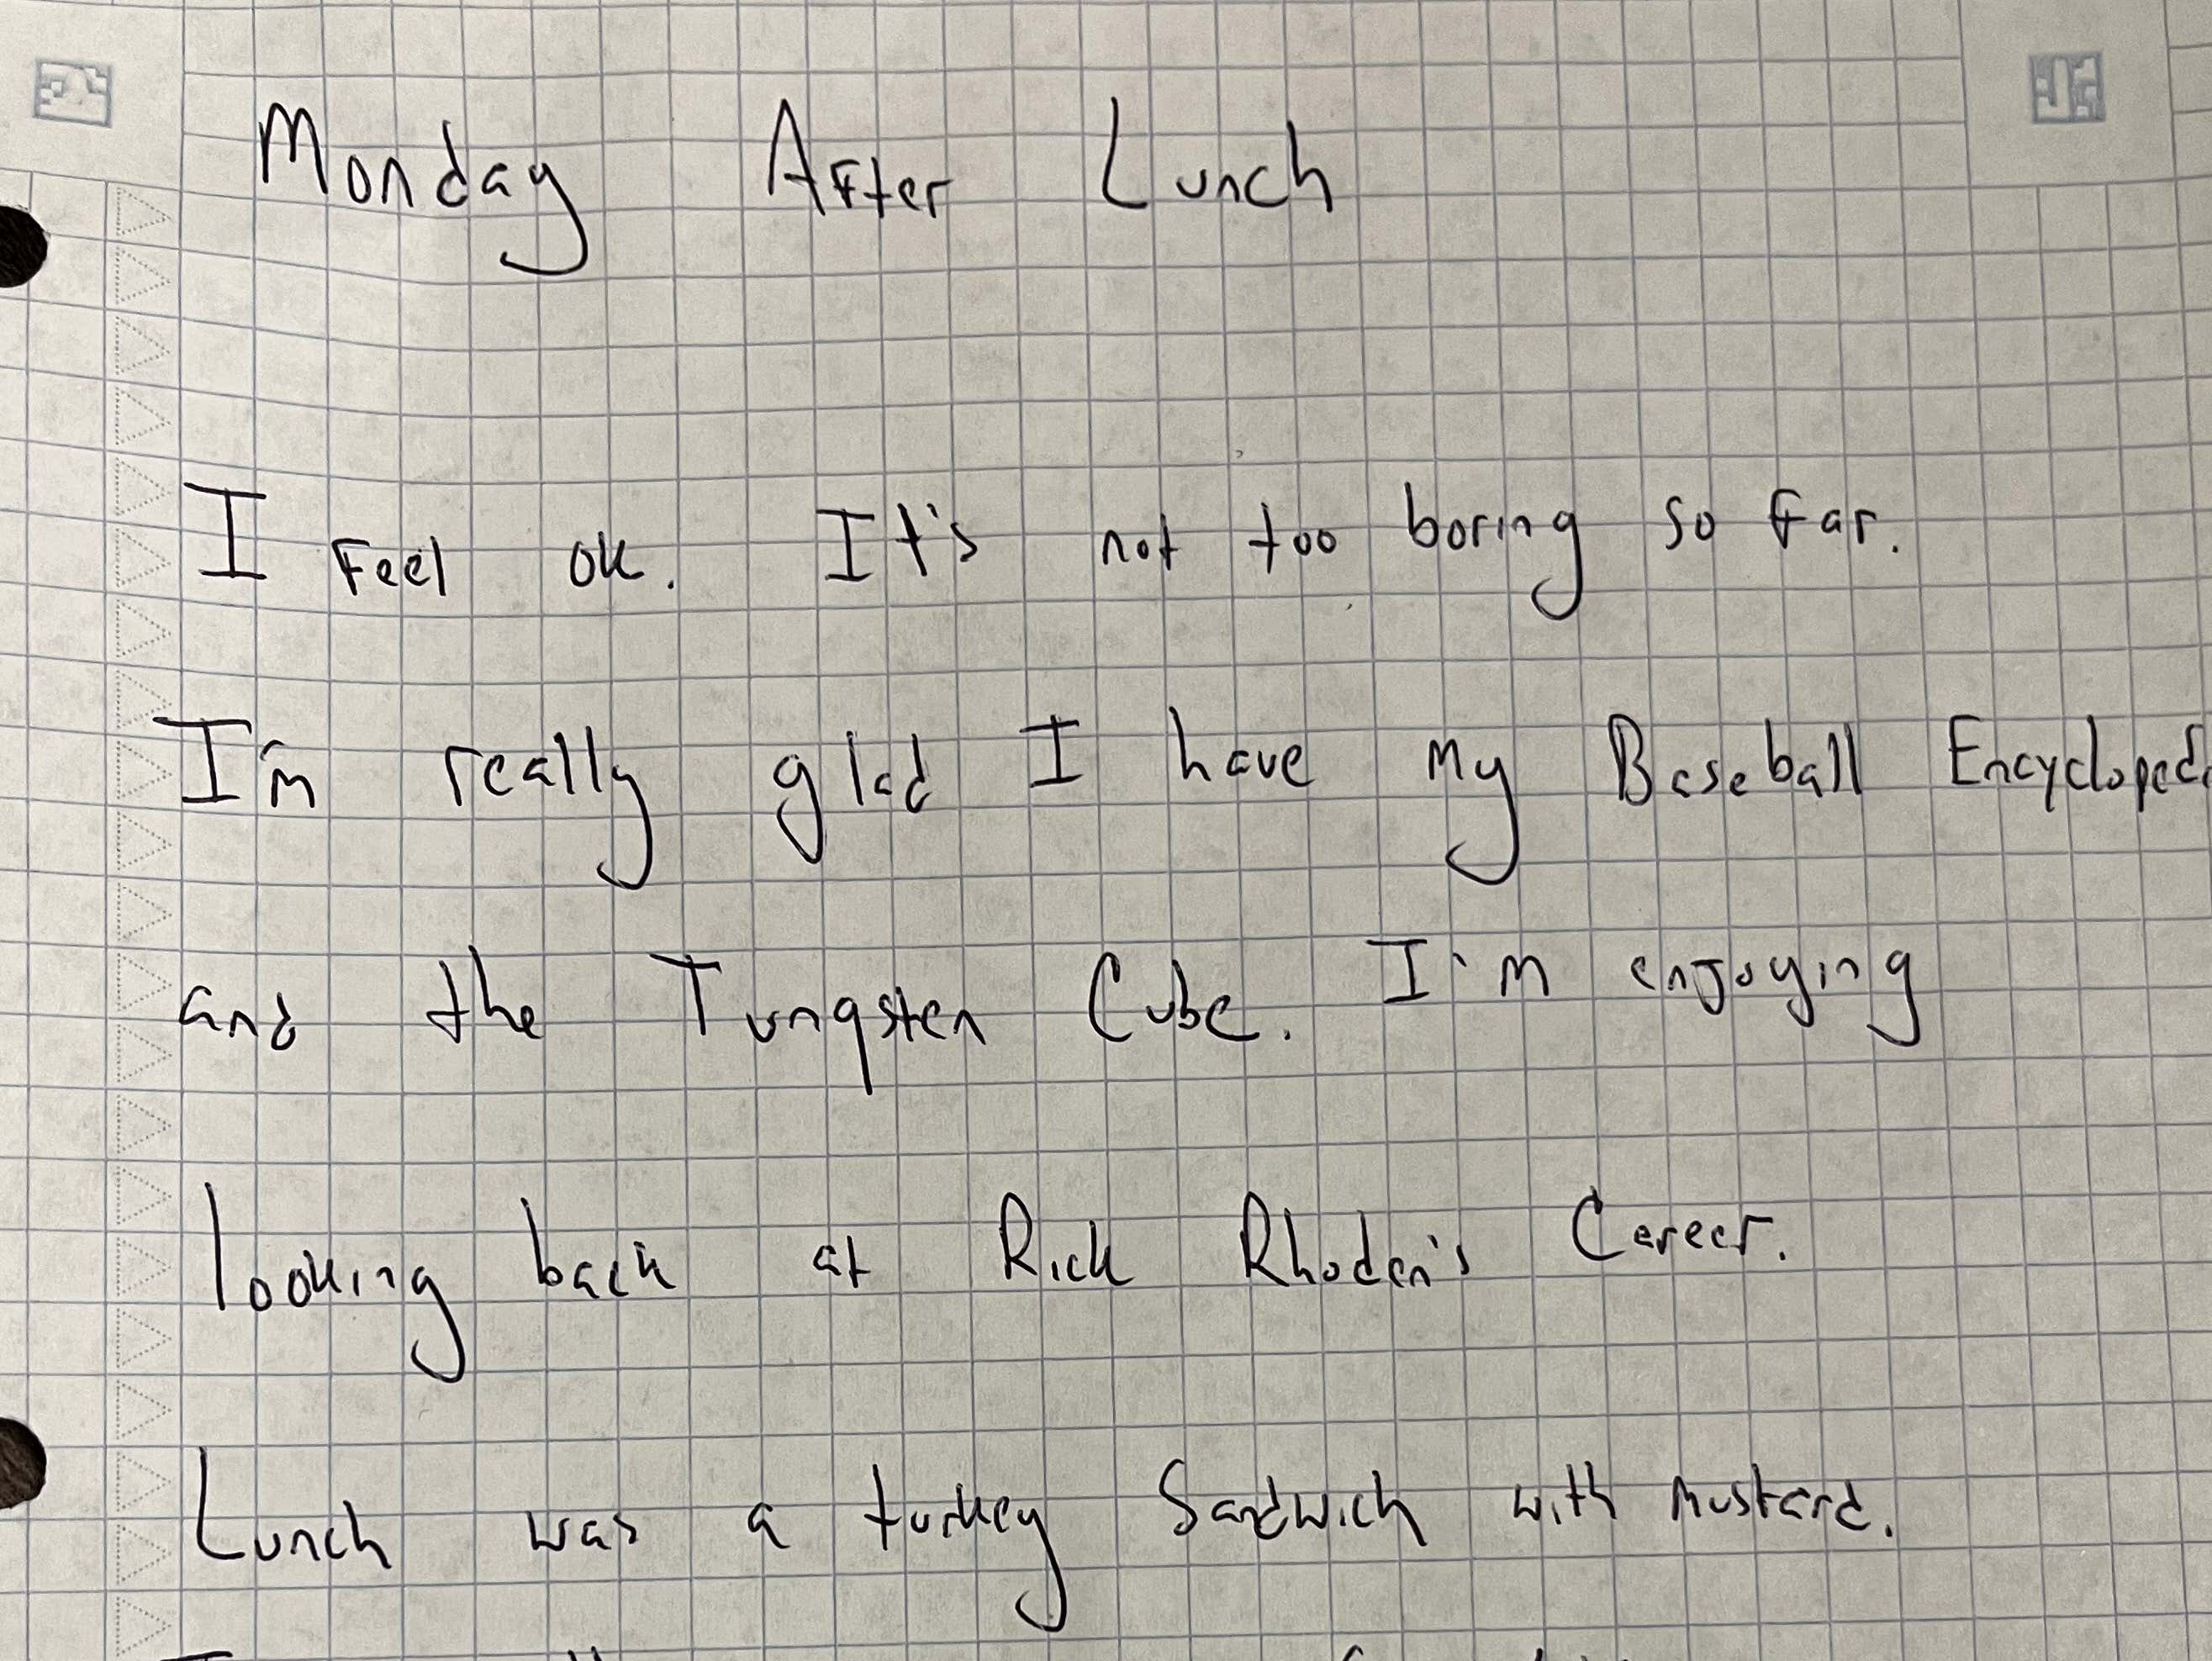 Monday After Lunch
I Feel ok. It's not too boring so far.
I'm really glad I have my Baseball
and the Tungsten Cube. I'm enjoying
looking back at Rick Rhoden's Career.
Lunch was a turkey Sandwich with mustard.